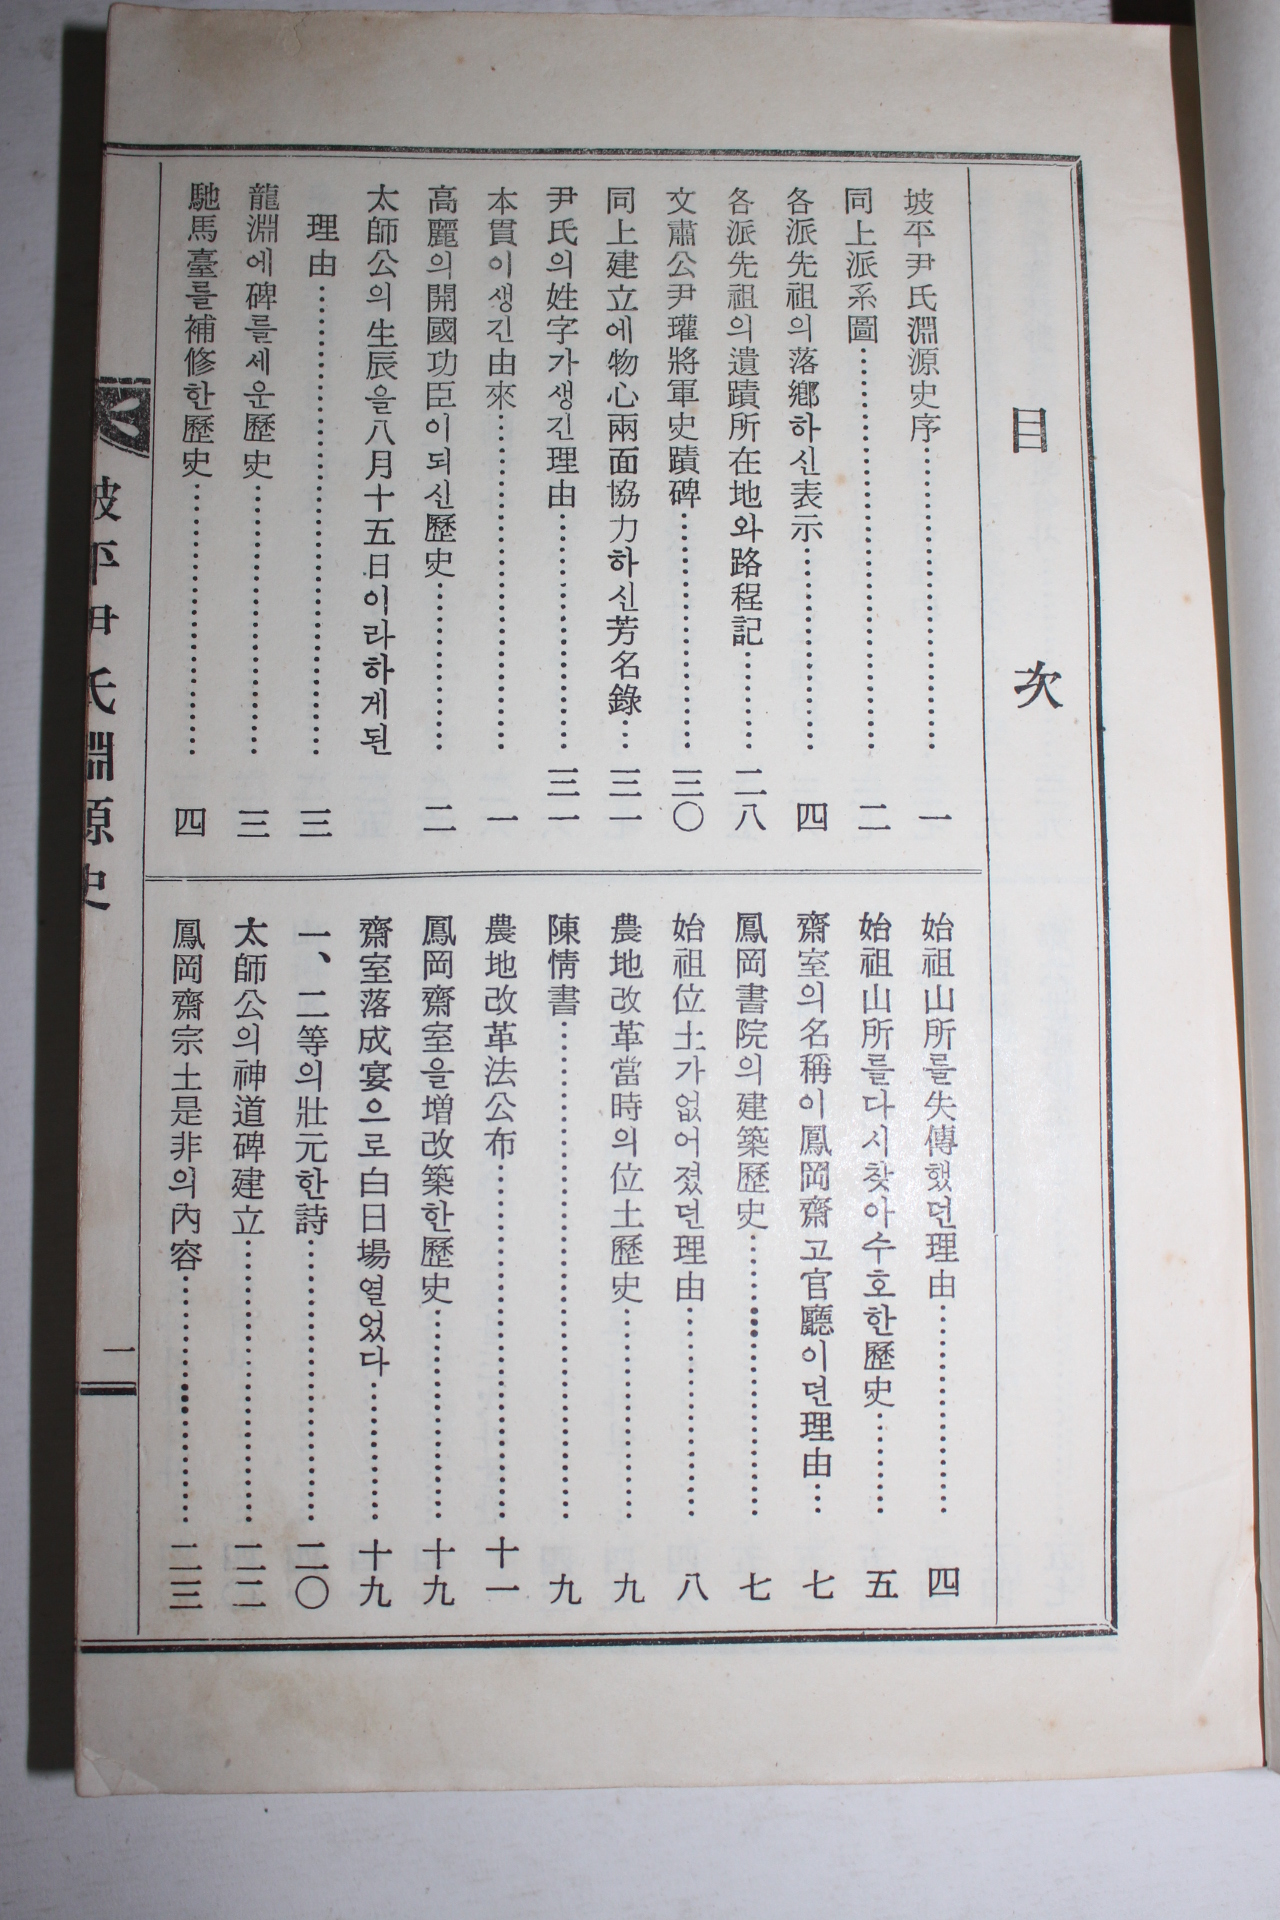 目次
坡平尹氏淵源史序…………一
同上派系圖…………二
各派先祖의落鄕하신表示…………四
各派先祖의遺蹟所在地와路程記……二八
文肅公尹瓘將軍史蹟碑…………三〇
同上建立에物心兩面協力하신芳名錄…三一
尹氏의姓字가생긴理由…………三一
本貫이생긴由來…………一
高麗의開國功臣이되신歷史…………二
太師公의生辰을八月十五日이라하게된
理由…………三
龍淵에碑를세운歷史…………三
馳馬臺를補修한歷史…………四
始祖山所를失傳했던理由…………四
始祖山所를다시찾아수호한歷史……五
齋室의名稱이鳳岡齋고官廳이던理由…七
鳳岡書院의建築歷史…………七
始祖位土가없어졌던理由…………八
農地改革當時의位土歷史…………九
陳情書…………九
農地改革法公布…………十一
鳳岡齋室을增改築한歷史…………十九
齋室落成宴으로白日場열었다……十九
一、二等의壯元한詩…………二〇
太師公의神道碑建立…………二二
鳳岡齋宗土是非의內容…………二三
坡平尹氏淵源史
一